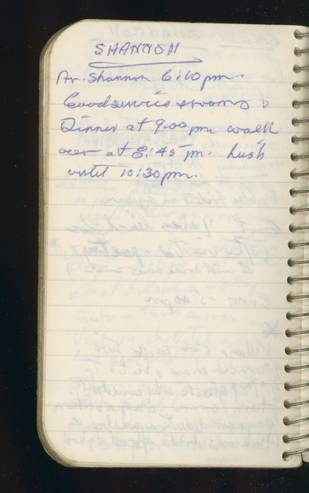 SHANNON
Ar. Shannon 6:10pm.
Good service & rooms &
Dinner at 9:00 pm walk
over at 8:45 pm. Lush
until 10:30pm.